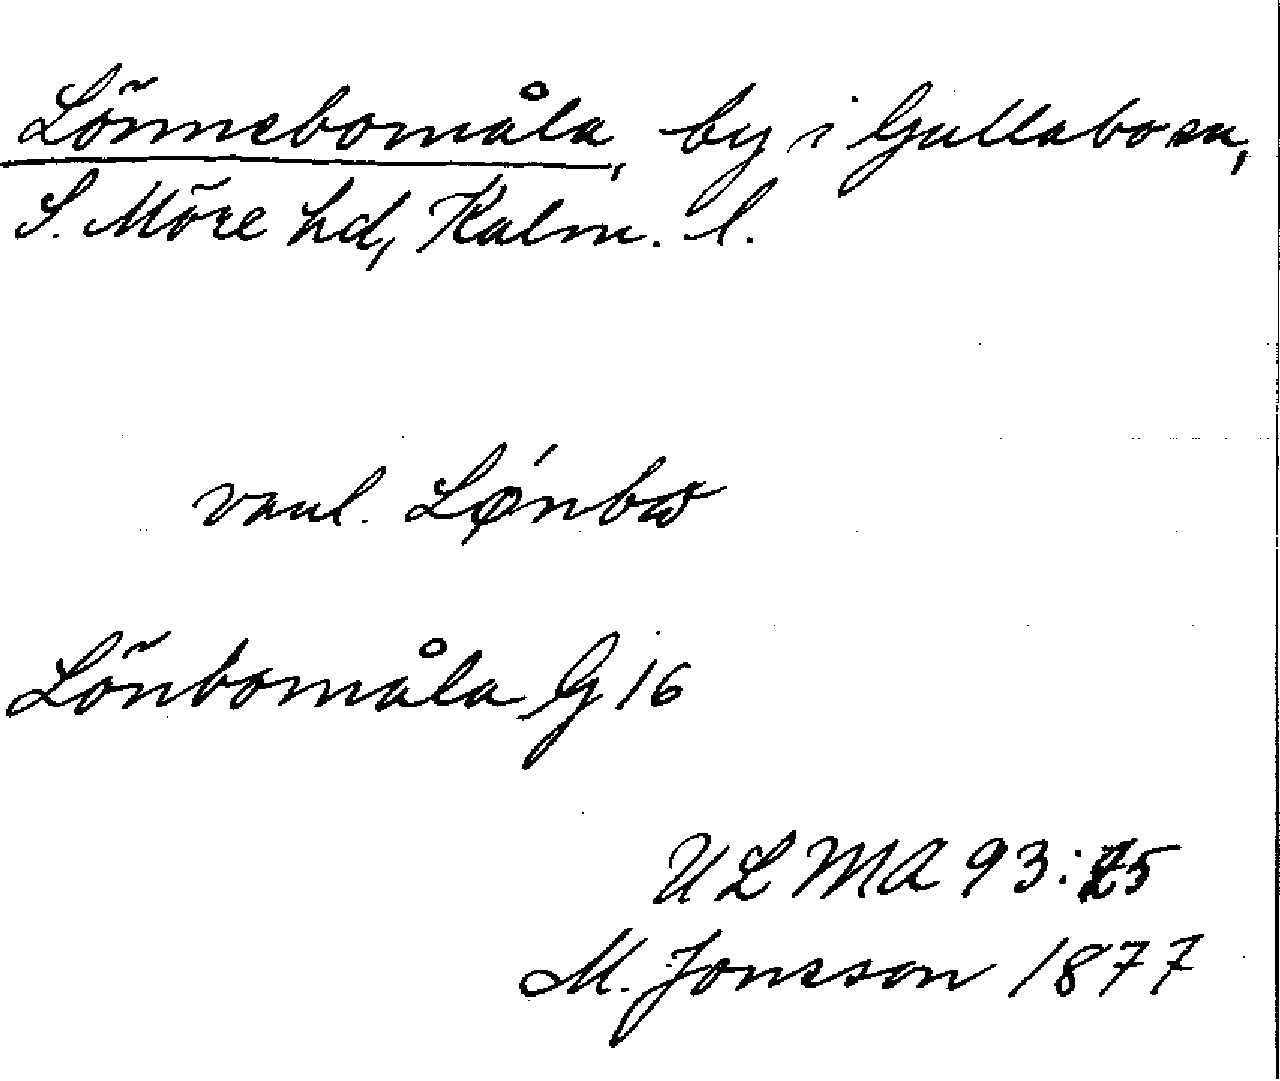 Lönnebomåla, by i Gullabo sn,
S. Möre hd, Kalm. l.
vanl. Lǿnbω
Lönbomåla G 16
ULMA 93:25
M. Jonsson 1877